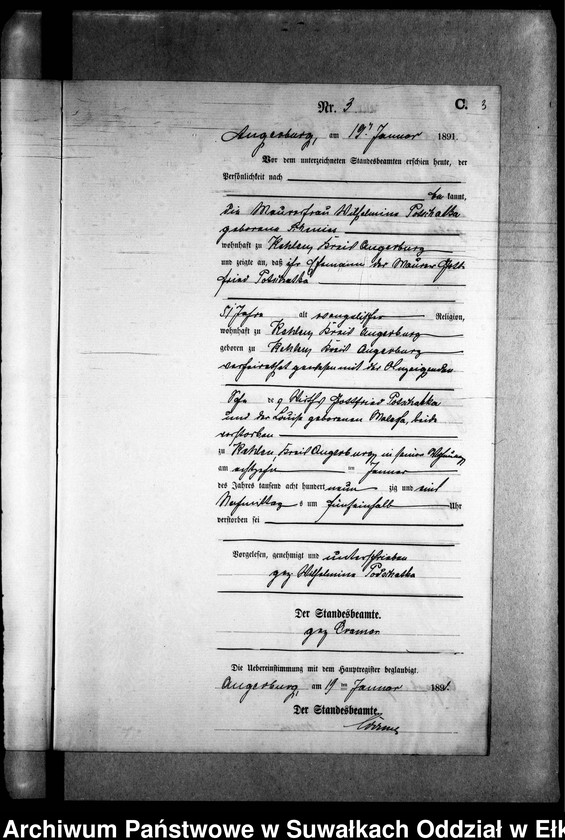 Nr. 3 C. 3
Angerburg, am 19ten Januar 1891.
Vor dem unterzeichneten Standesbeamten erschien heute, der
Persönlichkeit nach
be kannt,
die Maurerfrau Wilhelmine Potschatka
geborene
wohnhaft zu Kehlen, Kreis Angerburg
und zeigte an, daß ihr Ehemann der Maurer Gott-
fried Potschatka
51 Jahre alt evangelischer Religion,
wohnhaft zu Kehlen, Kreis Angerburg
geboren zu Kehlen, Kreis Angerburg
verheirathet gewesen mit der Anzeigenden
Sohn des Wirths Gottfried Potschatka
und der Louise geborenen beide
verstorben
zu Kehlen, Kreis Angerburg, in seiner Wohnung
am achtzehn ten Januar
des Jahres tausend acht hundert neun zig und eins
Nachmittag s um fünfeinhalb Uhr
verstorben sei
Vorgelesen, genehmigt und unterschrieben
gez. Wilhelmine Potschatka
Der Standesbeamte.
gez.
Die Uebereinstimmung mit dem Hauptregister beglaubigt.
Angerburg, am 19 ten Januar 1891.
Der Standesbeamte
Archiwum Państwowe w Suwałkach Oddział w Ełk